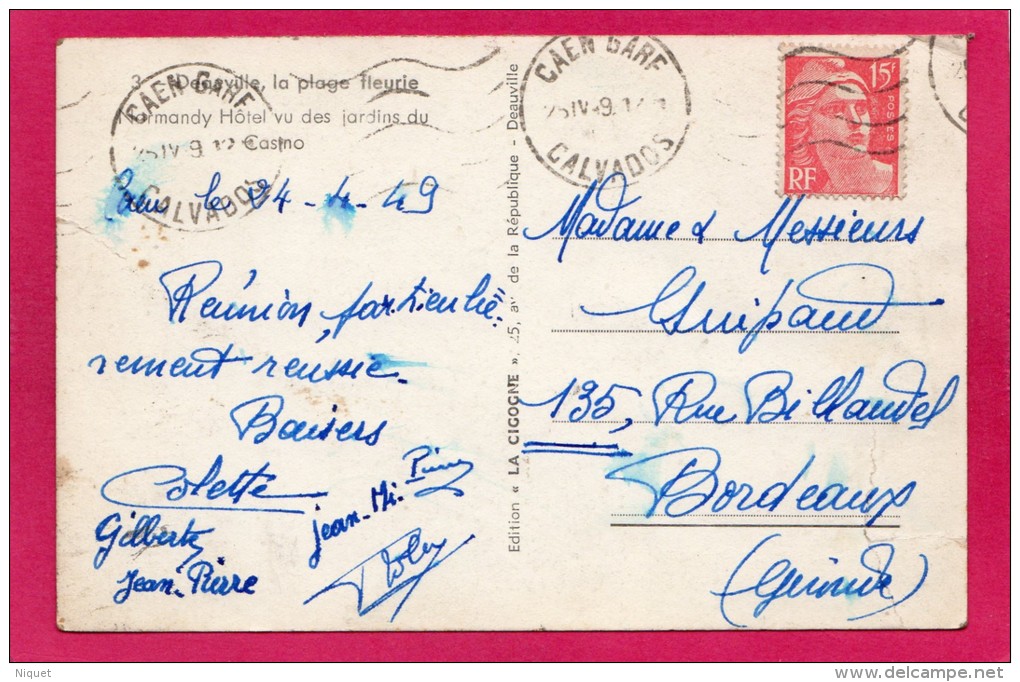 3 - Deauville, la plage fleurie
Normandy Hôtel vu des jardins du
Casino
CAEN GARE
25 IV 49
CALVADOS
CAEN GARE
25 IV 49
CALVADOS
15F
POSTES
RF
Caen le 24-4-49
Réunion particuliè-
rement réussie.
Baisers
Colette
Gilberte
Jean-Pierre
Jean-Mi-
Edition « LA CIGOGNE », 45, av. de la République - Deauville
Madame & Messieurs
Guipaud
135, Rue Billaudel
Bordeaux
(Gironde)
Niquet
www.delcampe.net